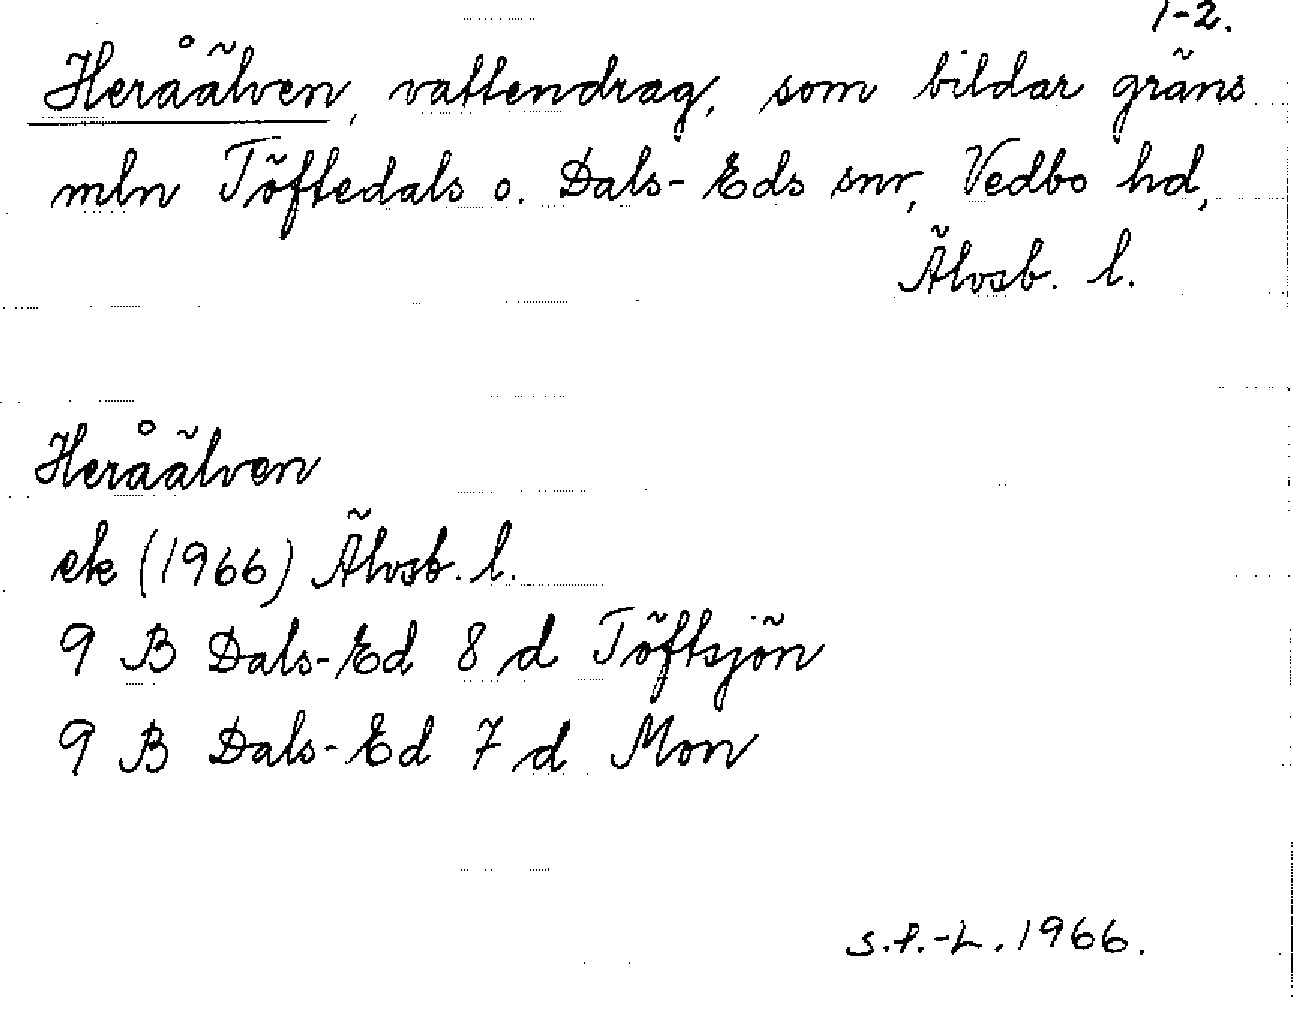 1-2.
Heråälven, vattendrag, som bildar gräns
mln Töftedals o. Dals-Eds snr, Vedbo hd,
Älvsb. l.
Heråälven
ek (1966) Älvsb. l.
9 B Dals-Ed 8 d Töftsjön
9 B Dals-Ed 7 d Mon
S.f.-L. 1966.